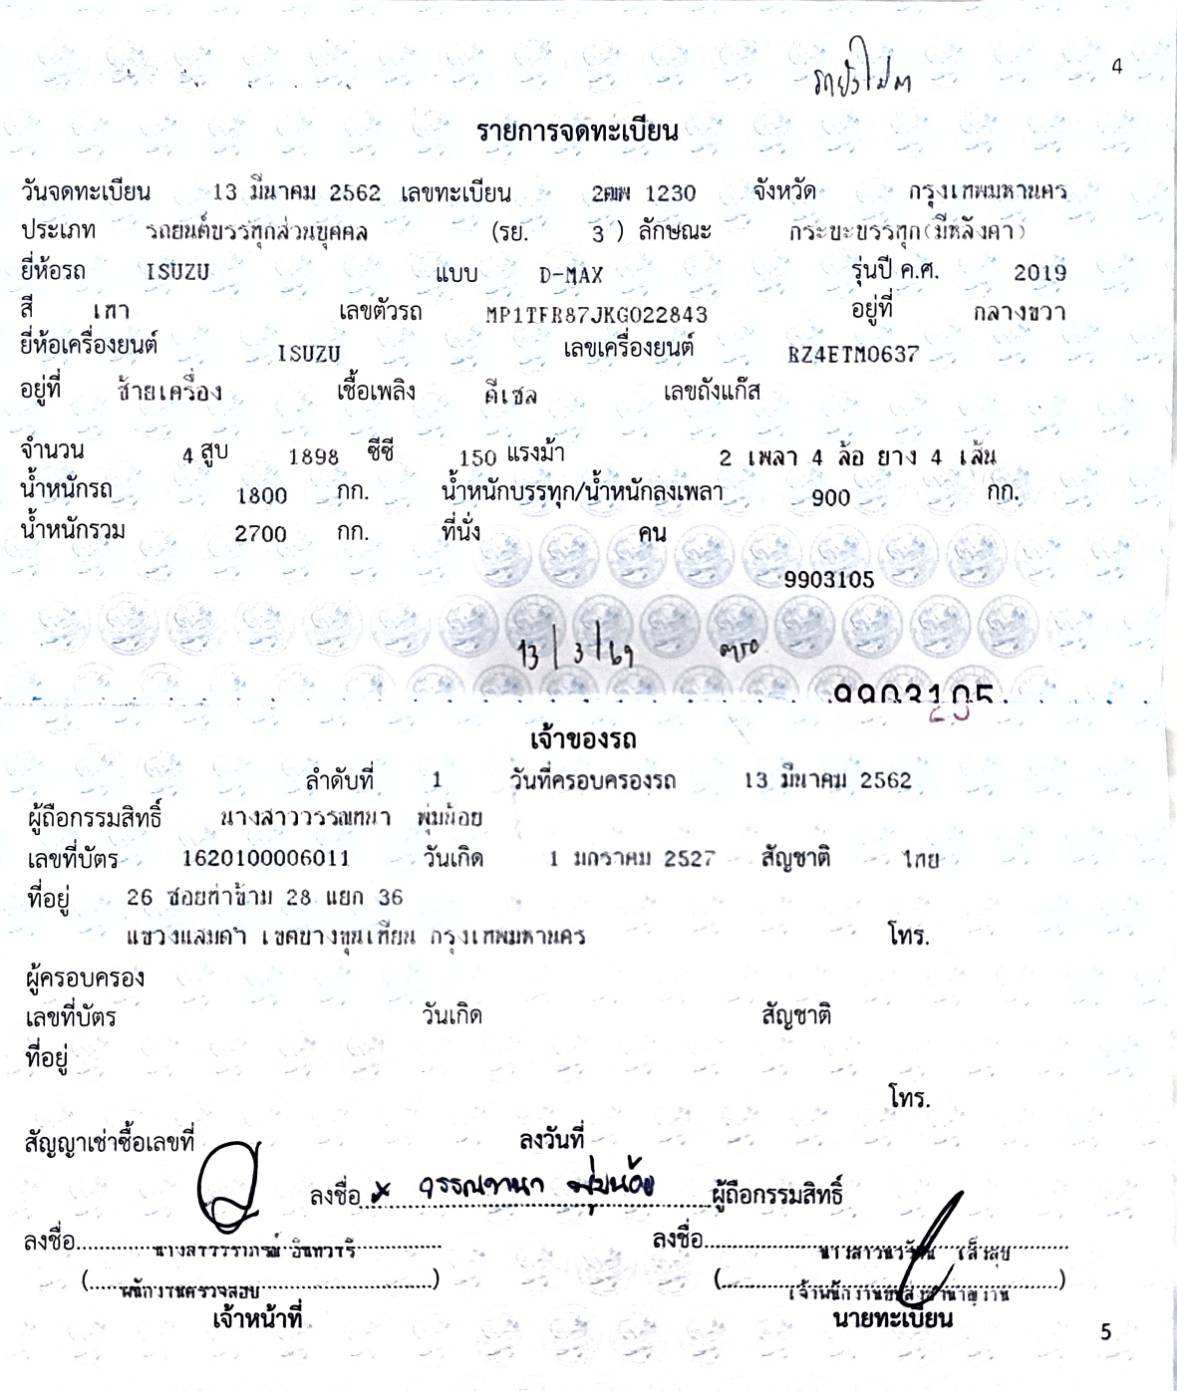 4
รายการจดทะเบียน
วันจดทะเบียน 13 มีนาคม 2562 เลขทะเบียน 2ฒพ 1230 จังหวัด กรุงเทพมหานคร
ประเภท รถยนต์บรรทุกส่วนบุคคล (รย. 3 ) ลักษณะ กระบะบรรทุก(มีหลังคา)
ยี่ห้อรถ ISUZU แบบ D-MAX รุ่นปี ค.ศ. 2019
สี เทา เลขตัวรถ MP1TFR87JKG022843 อยู่ที่ กลางขวา
ยี่ห้อเครื่องยนต์ ISUZU เลขเครื่องยนต์ RZ4ETM0637
อยู่ที่ ซ้ายเครื่อง เชื้อเพลิง ดีเซล เลขถังแก๊ส
จำนวน 4 สูบ 1898 ซีซี 150 แรงม้า 2 เพลา 4 ล้อ ยาง 4 เส้น
น้ำหนักรถ 1800 กก. น้ำหนักบรรทุก/น้ำหนักลงเพลา 900 กก.
น้ำหนักรวม 2700 กก. ที่นั่ง คน
9903105
13/3/69 ตรอ
เจ้าของรถ
ลำดับที่ 1 วันที่ครอบครองรถ 13 มีนาคม 2562
ผู้ถือกรรมสิทธิ์ นางสาววรรณทนา พุ่มน้อย
เลขที่บัตร 1620100006011 วันเกิด 1 มกราคม 2527 สัญชาติ ไทย
ที่อยู่ 26 ซอยท่าข้าม 28 แยก 36
แขวงแสมดำ เขตบางขุนเทียน กรุงเทพมหานคร โทร.
ผู้ครอบครอง
เลขที่บัตร วันเกิด สัญชาติ
ที่อยู่
โทร.
สัญญาเช่าซื้อเลขที่ ลงวันที่
ลงชื่อ x วรรณทนา พุ่มน้อย ผู้ถือกรรมสิทธิ์
ลงชื่อ นางสาววราภรณ์ อินทวารี ลงชื่อ
(พนักงานตรวจสอบ) (เจ้าพนักงานขนส่งชำนาญงาน)
เจ้าหน้าที่ นายทะเบียน
5